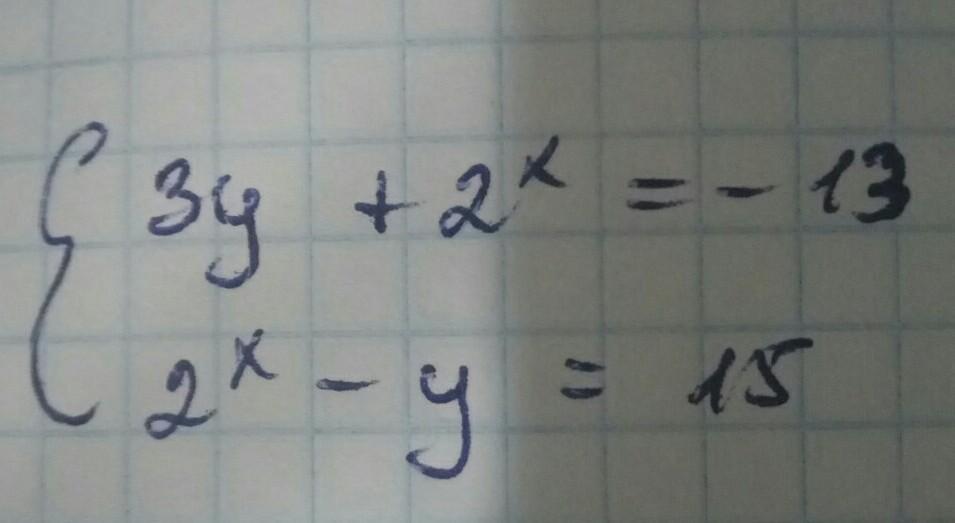 3y + 2ˣ = - 13
2ˣ - y = 15